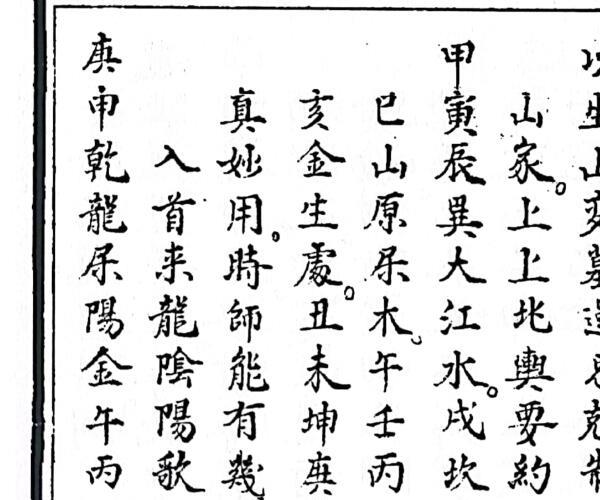 山家。上上北輿要約
甲寅辰巽大江水。戌坎
巳山原属木。午壬丙
亥金生處。丑未坤庚
真妙用。時師能有幾
入首来龍陰陽歌
庚申乾龍属陽金午丙